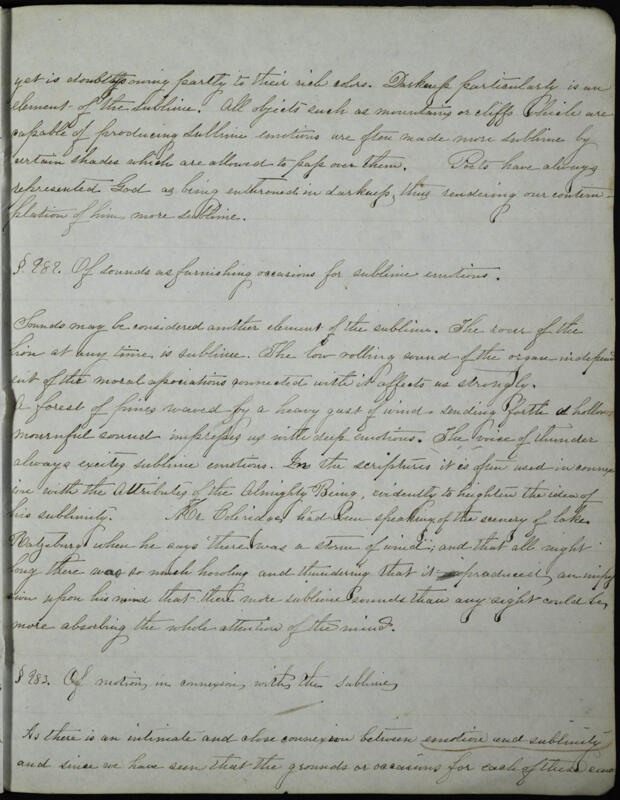 yet is doubtless owing partly to their rich colors. Darkness particularly is an
element of the sublime. All objects such as mountains or cliffs which are
capable of producing sublime emotions are often made more sublime by
certain shades which are allowed to pass over them. Poets have always
represented God as being enthroned in darkness, thus rendering our contem-
plation of him more sublime.
§. 282. Of sounds as furnishing occasions for sublime emotions.
Sounds may be considered another element of the sublime. The roar of the
lion at any time, is sublime. The low rolling sound of the organ independ
ent of the moral associations connected with it affects us strongly.
A forest of pines waved by a heavy gust of wind sending forth a hollow
mournful sound impresses us with deep emotions. The voice of thunder
always excites sublime emotions. In the scriptures it is often used in connex
ion with the Attributes of the Almighty Being, evidently to heighten the idea of
his sublimity. Mr Coleridge had been speaking of the scenery of lake
Ratzeburg when he says there was a storm of wind; and that all night
long there was so much howling and thundering that it produced an impres
sion upon his mind that there more sublime sounds than any sight could be,
more absorbing the whole attention of the mind.
§ 283. Of motion, in connexion with the sublime,
As there is an intimate and close connexion between emotion and sublimity
and since we have seen that the grounds or occasions for each of these emo